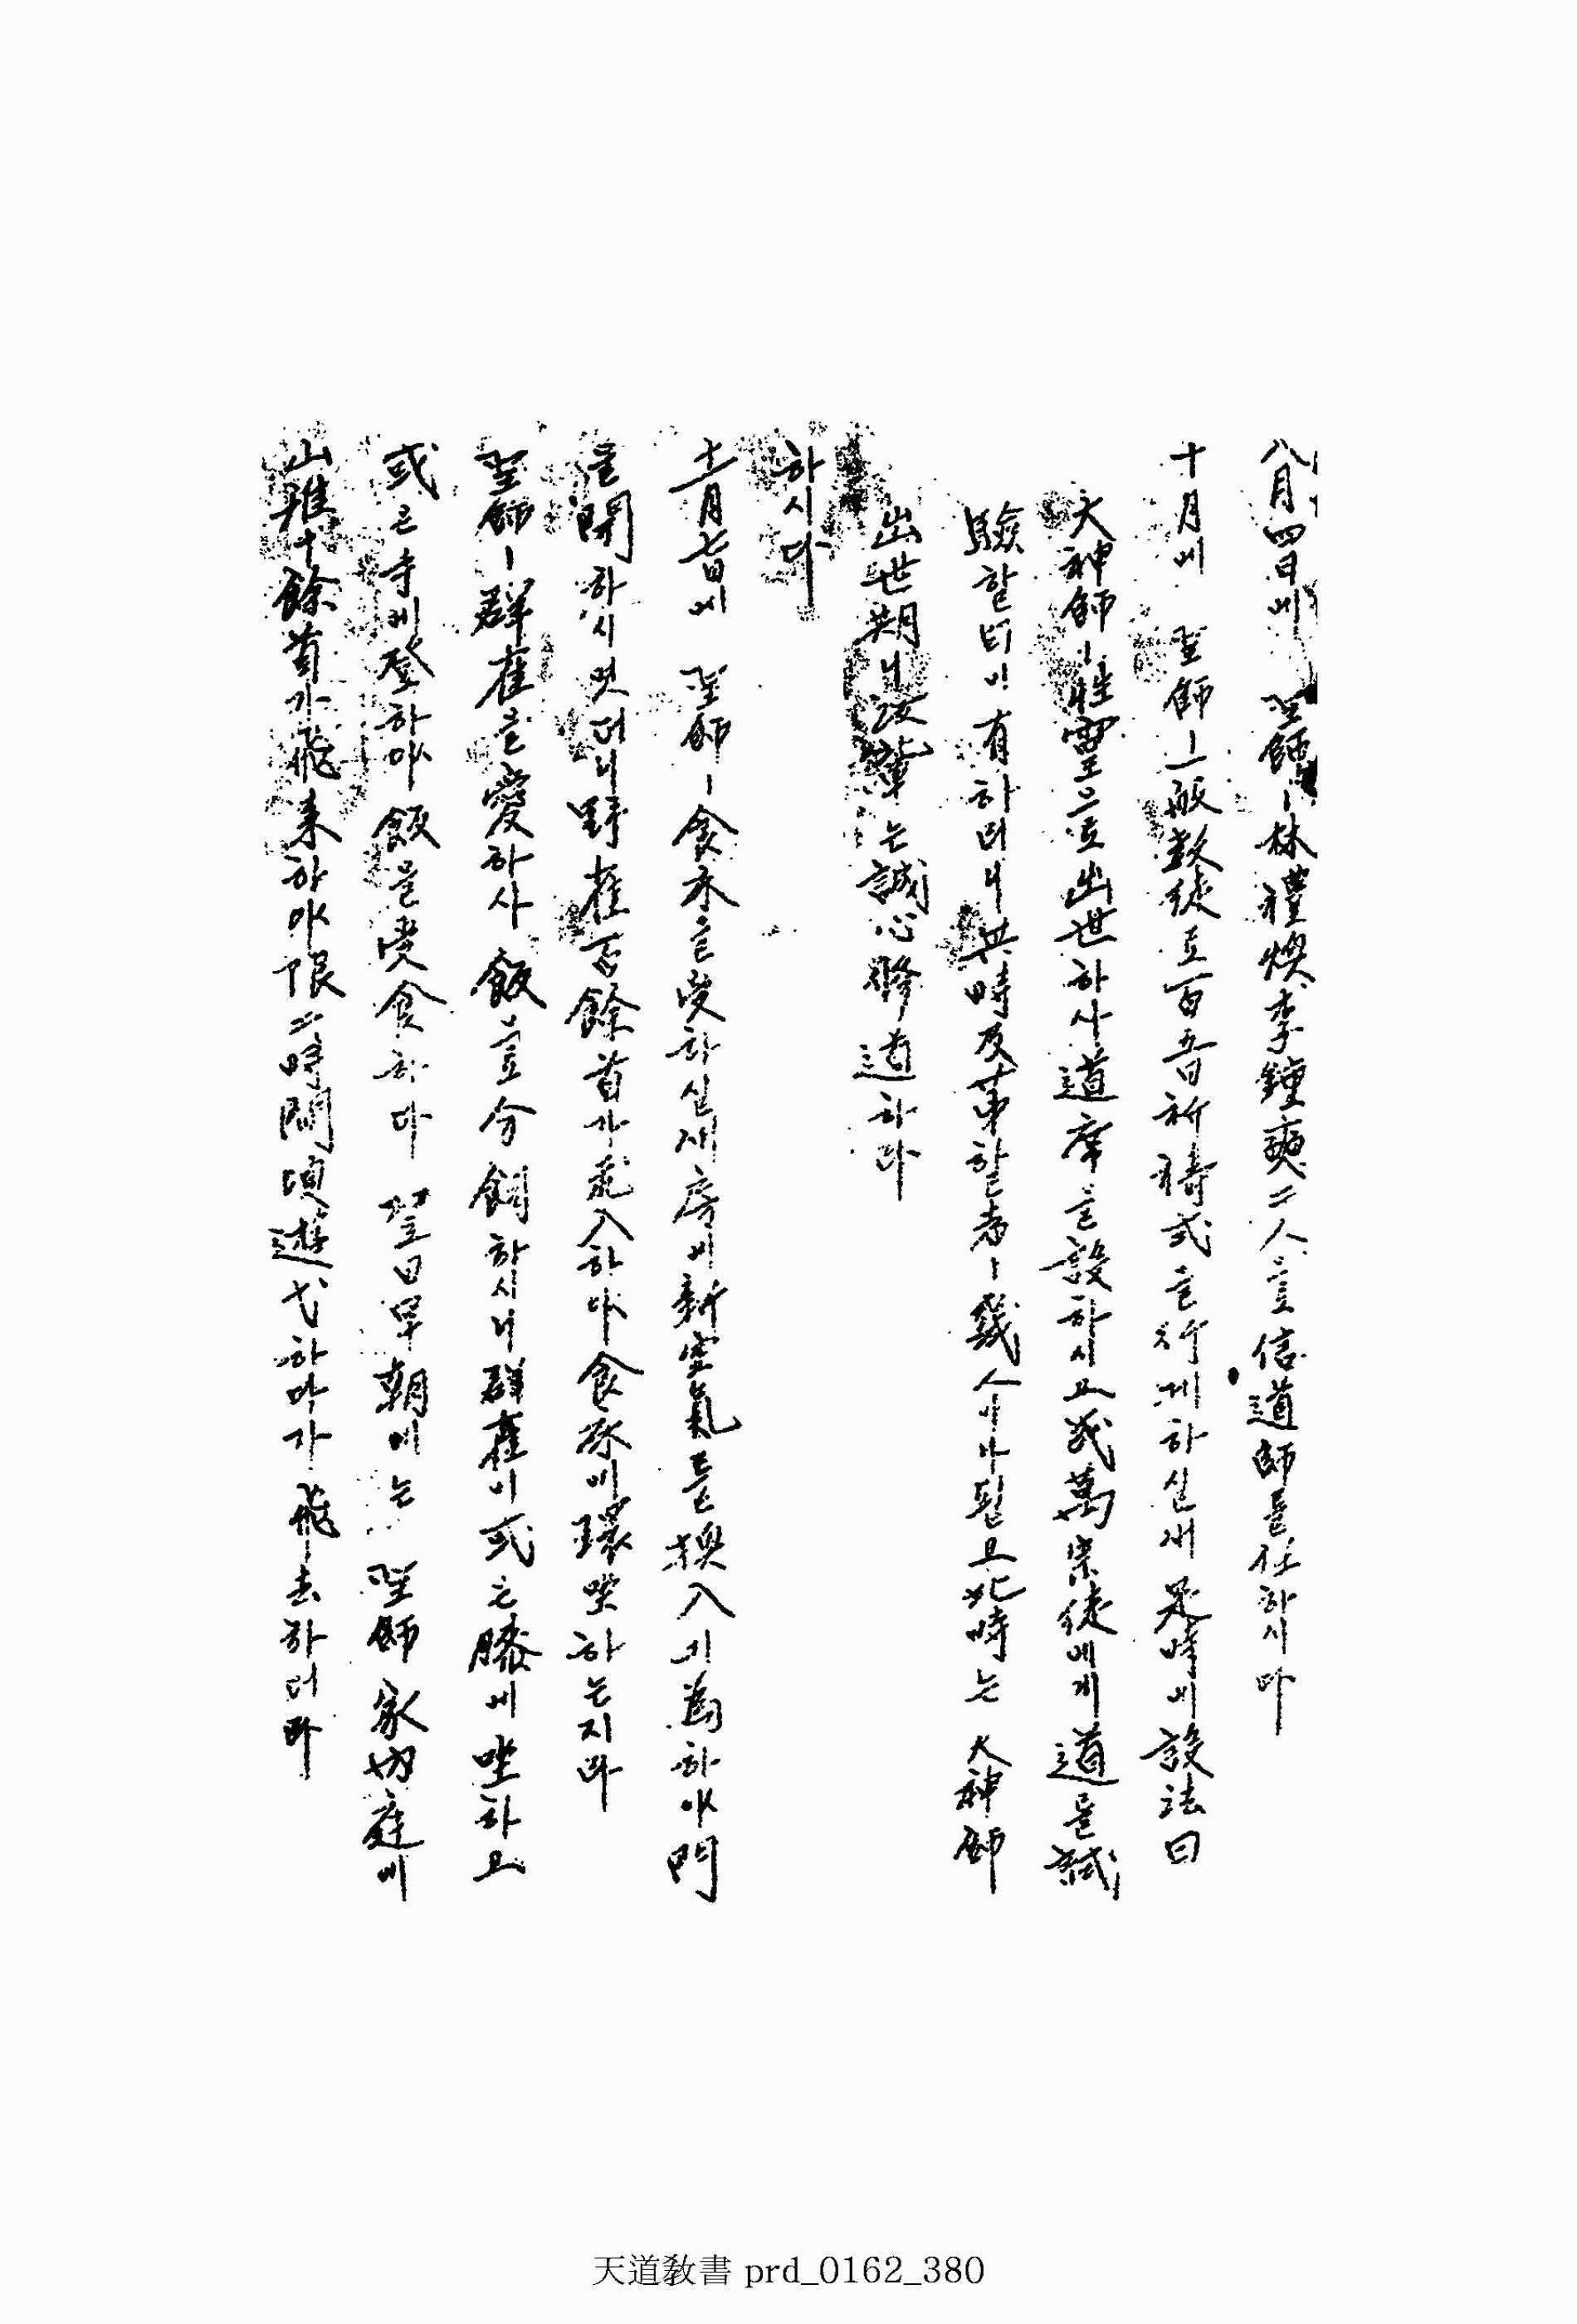 八月四日에 聖師ㅣ林禮煥李鍾奭二人을信道師를任하시다
十月에 聖師ㅣ一般敎徒로百五日祈禱式을行케하실새是時에設法曰
大神師ㅣ性靈으로出世하사道席을設하시고幾萬衆徒에게道를試
驗할터이有하리니其時及第할者ㅣ幾人이나될고此時는 大神師
出世期니汝輩는誠心修道하라
하시다
十二月七日에 聖師ㅣ食床을受하실새房에新空氣를換入키爲하야門
을開하시엿더니野雀百餘首가飛入하야食床에環坐하는지라
聖師ㅣ群雀을愛하사飯으로分飼하시니群雀이或은膝에坐하고
或은手에登하야飯을受食하다 翌日早朝에는 聖師家內庭에
山雉十餘首가飛來하야限二時間頃遊弋하다가飛去하더라
天道教書 prd_0162_380